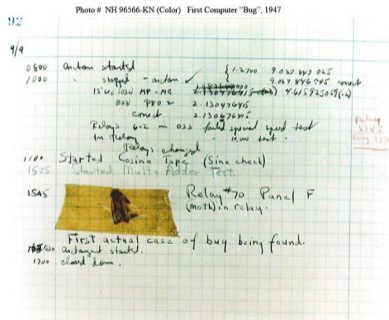 Photo # NH 96566-KN (Color) First Computer "Bug", 1947
92
9/9
0800 Antan started
1000 " stopped - antan ✓ { 1.2700 9.037 847 025
9.037 846 995 correct
13"UC (032) MP - MC 4.615925059(-2)
033 PRO 2 2.130476415
correct 2.130676415
Relays 6-2 in 033 failed special speed test
in Relay " 10.000 test.
Relays changed
1100 Started Cosine Tape (Sine check)
1525 Started Multi Adder Test.
1545 Relay #70 Panel F
(Moth) in relay.
First actual case of bug being found.
antangent started.
1700 closed down.